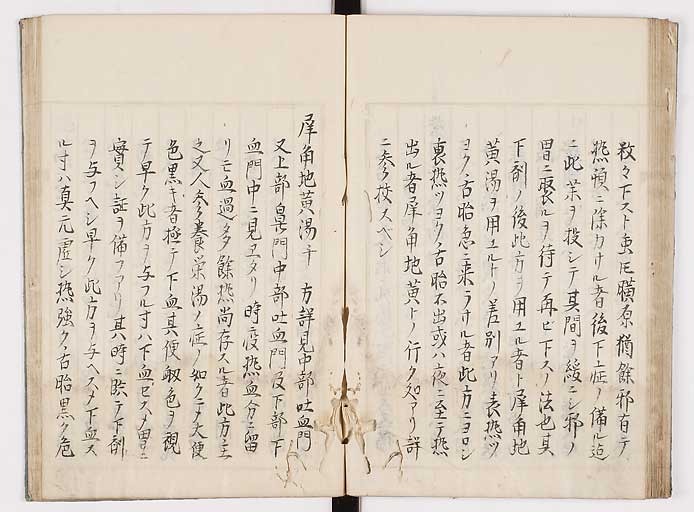 数々下スト虽𪜈膜原猶餘邪有テ
熱頻ニ除カサル者後下症ノ備ル迠
ニ此藥ヲ投シテ其間ヲ緩ニシ邪ノ
胃ニ聚ルヲ待テ再ヒ下スノ法也其
下剤ノ後此方ヲ用ユル者ト犀角地
黄湯ヲ用ユルトノ差別アリ表熱ツ
ヨク舌胎急ニ来ラサル者此方ニヨロシ
裏熱ツヨク舌胎不出或ハ夜ニ至テ熱
出ル者犀角地黄トノ行ク処アリ詳
ニ参考スベシ
犀角地黄湯 方詳見中部吐血門
又上部衂門中部吐血門及下部下
血門中ニ見ユタリ時疫熱血分ニ留
リモ血過タタ餘熱尚存スル者此方主
之又人参養栄湯ノ症ノ如クニテ大便
色黒キ者極テ下血其便𠜇色ヲ視
テ早ク此方ヲ与フル寸ハ下血セスノ胃ニ
實シ証ヲ備フアリ其時ニ臨テ下剤
ヲ与フヘシ早ク此方ヲ与ヘスメ下血ス
ル寸ハ真元虚シ熱強ク舌胎黒ク危